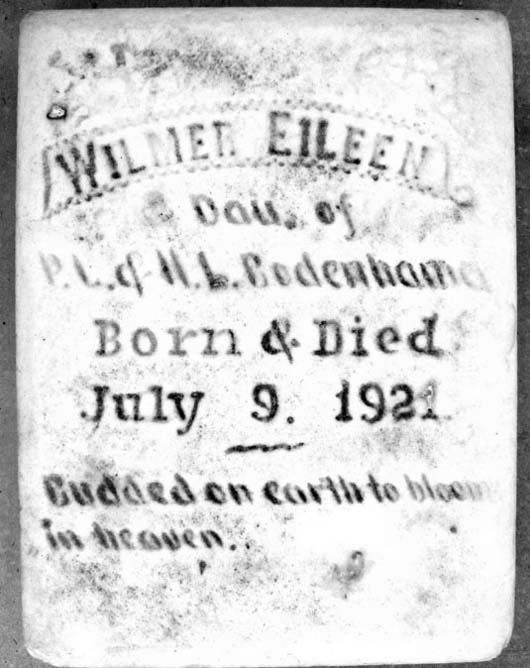 WILMER EILEEN
Dau. of
P. L. & N. L. Bodenhamer
Born & Died
July 9. 1921.
Budded on earth to bloom
in heaven.